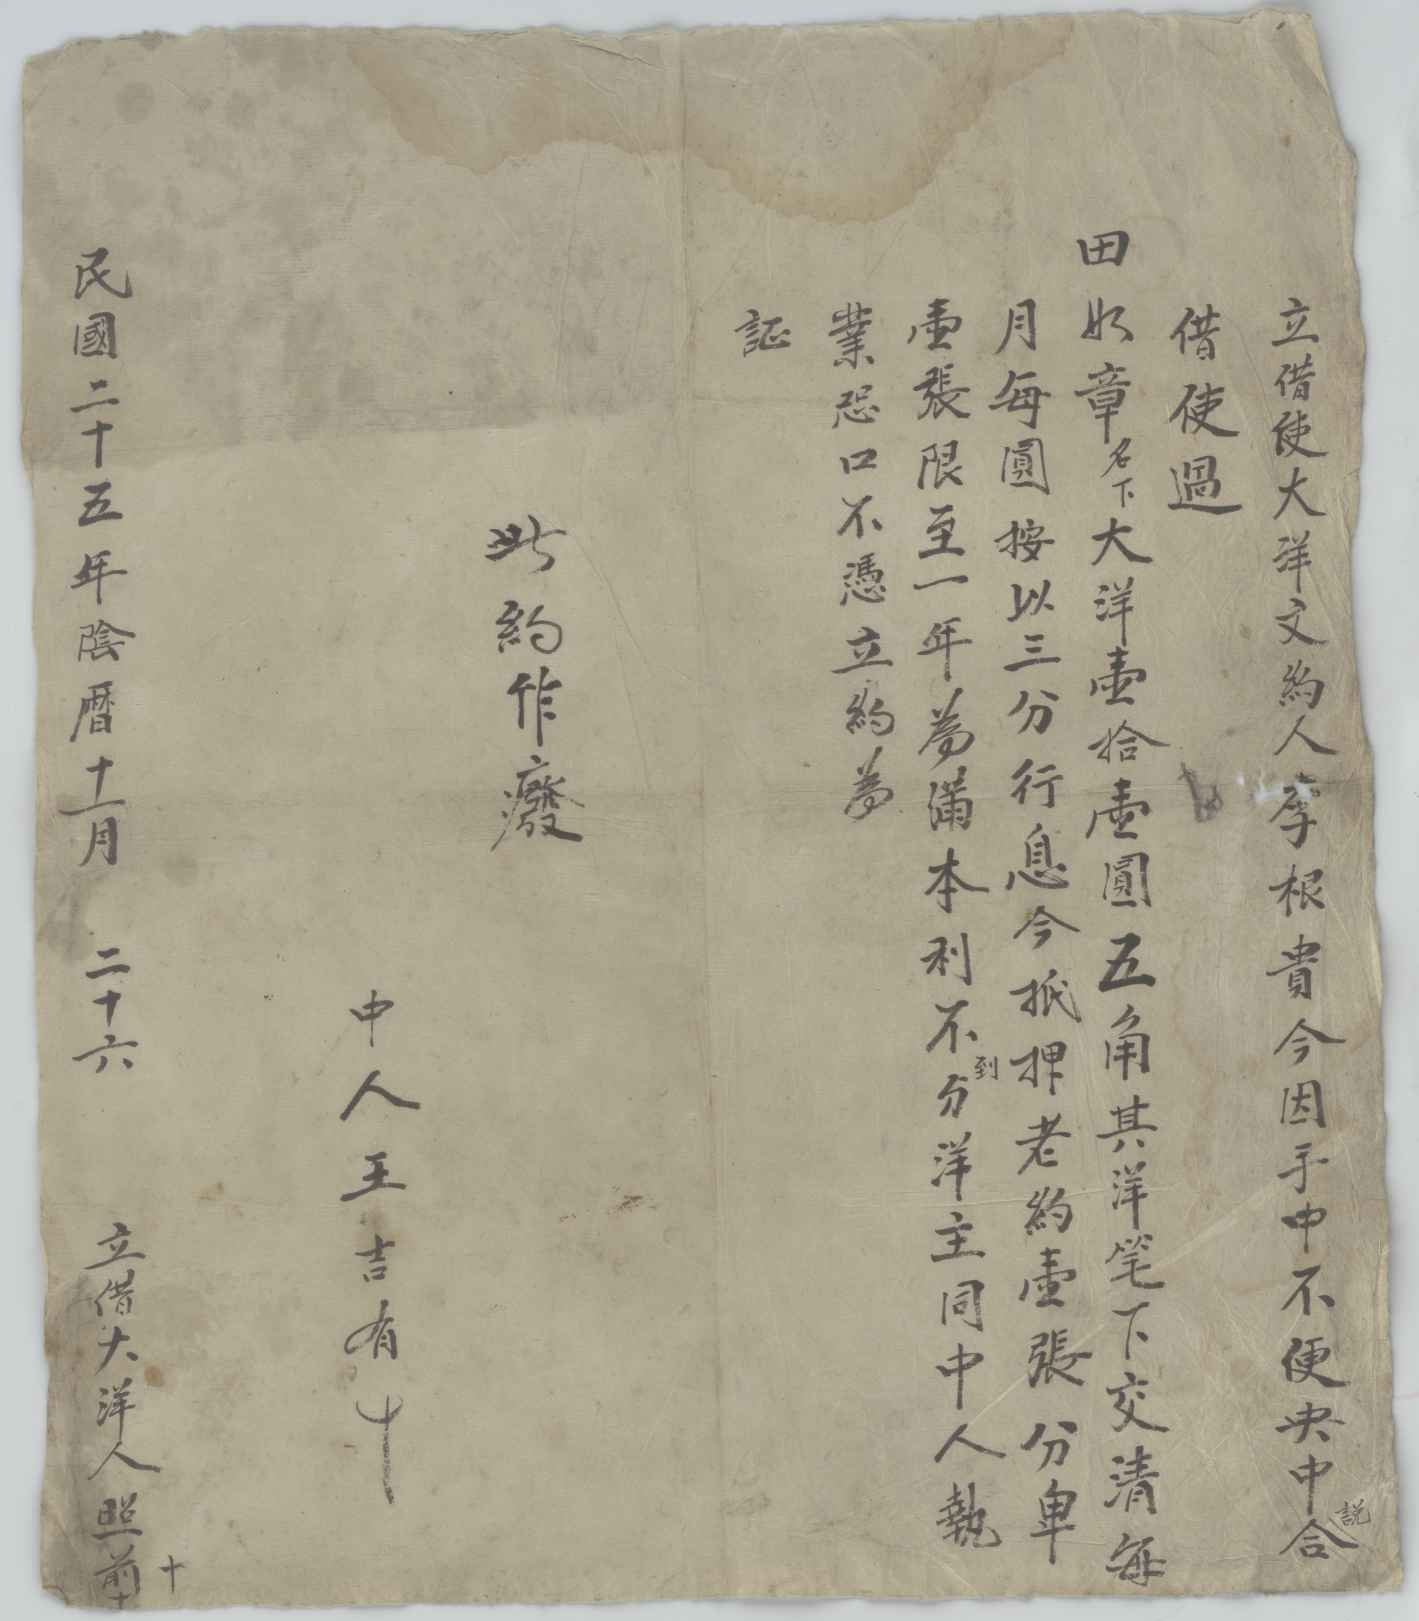 立借使大洋文約人李根貴今因手中不便央中說合
借使過
田如章名下大洋壹拾壹圓五角其洋筆下交清每
月每圓按以三分行息今抵押老約壹張分单
壹張限至一年為滿本利不到分洋主同中人執
業恐口不憑立約為
証
此約作廢
中人王吉有十
民國二十五年陰曆十一月 二十六 立借大洋人照前十